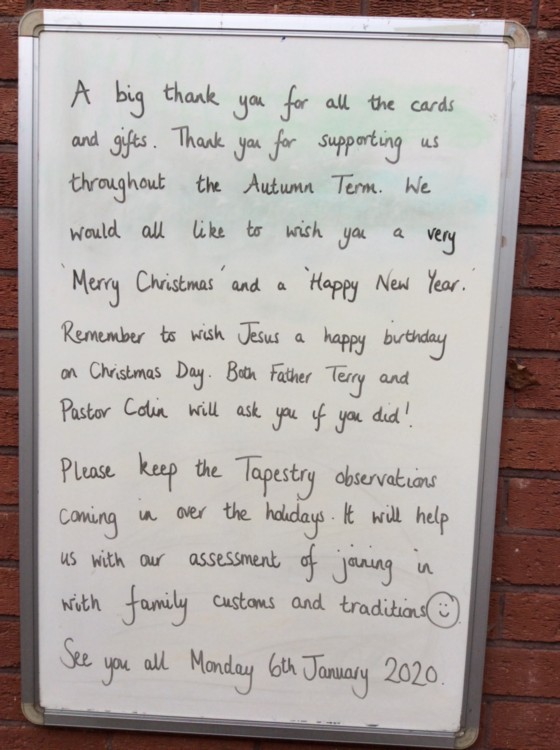 A big thank you for all the cards
and gifts. Thank you for supporting us
throughout the Autumn Term. We
would all like to wish you a very
'Merry Christmas' and a 'Happy New Year.'
Remember to wish Jesus a happy birthday
on Christmas Day. Both Father Terry and
Pastor Colin will ask you if you did!
Please keep the Tapestry observations
coming in over the holidays. It will help
us with our assessment of joining in
with family customs and traditions☺.
See you all Monday 6th January 2020.